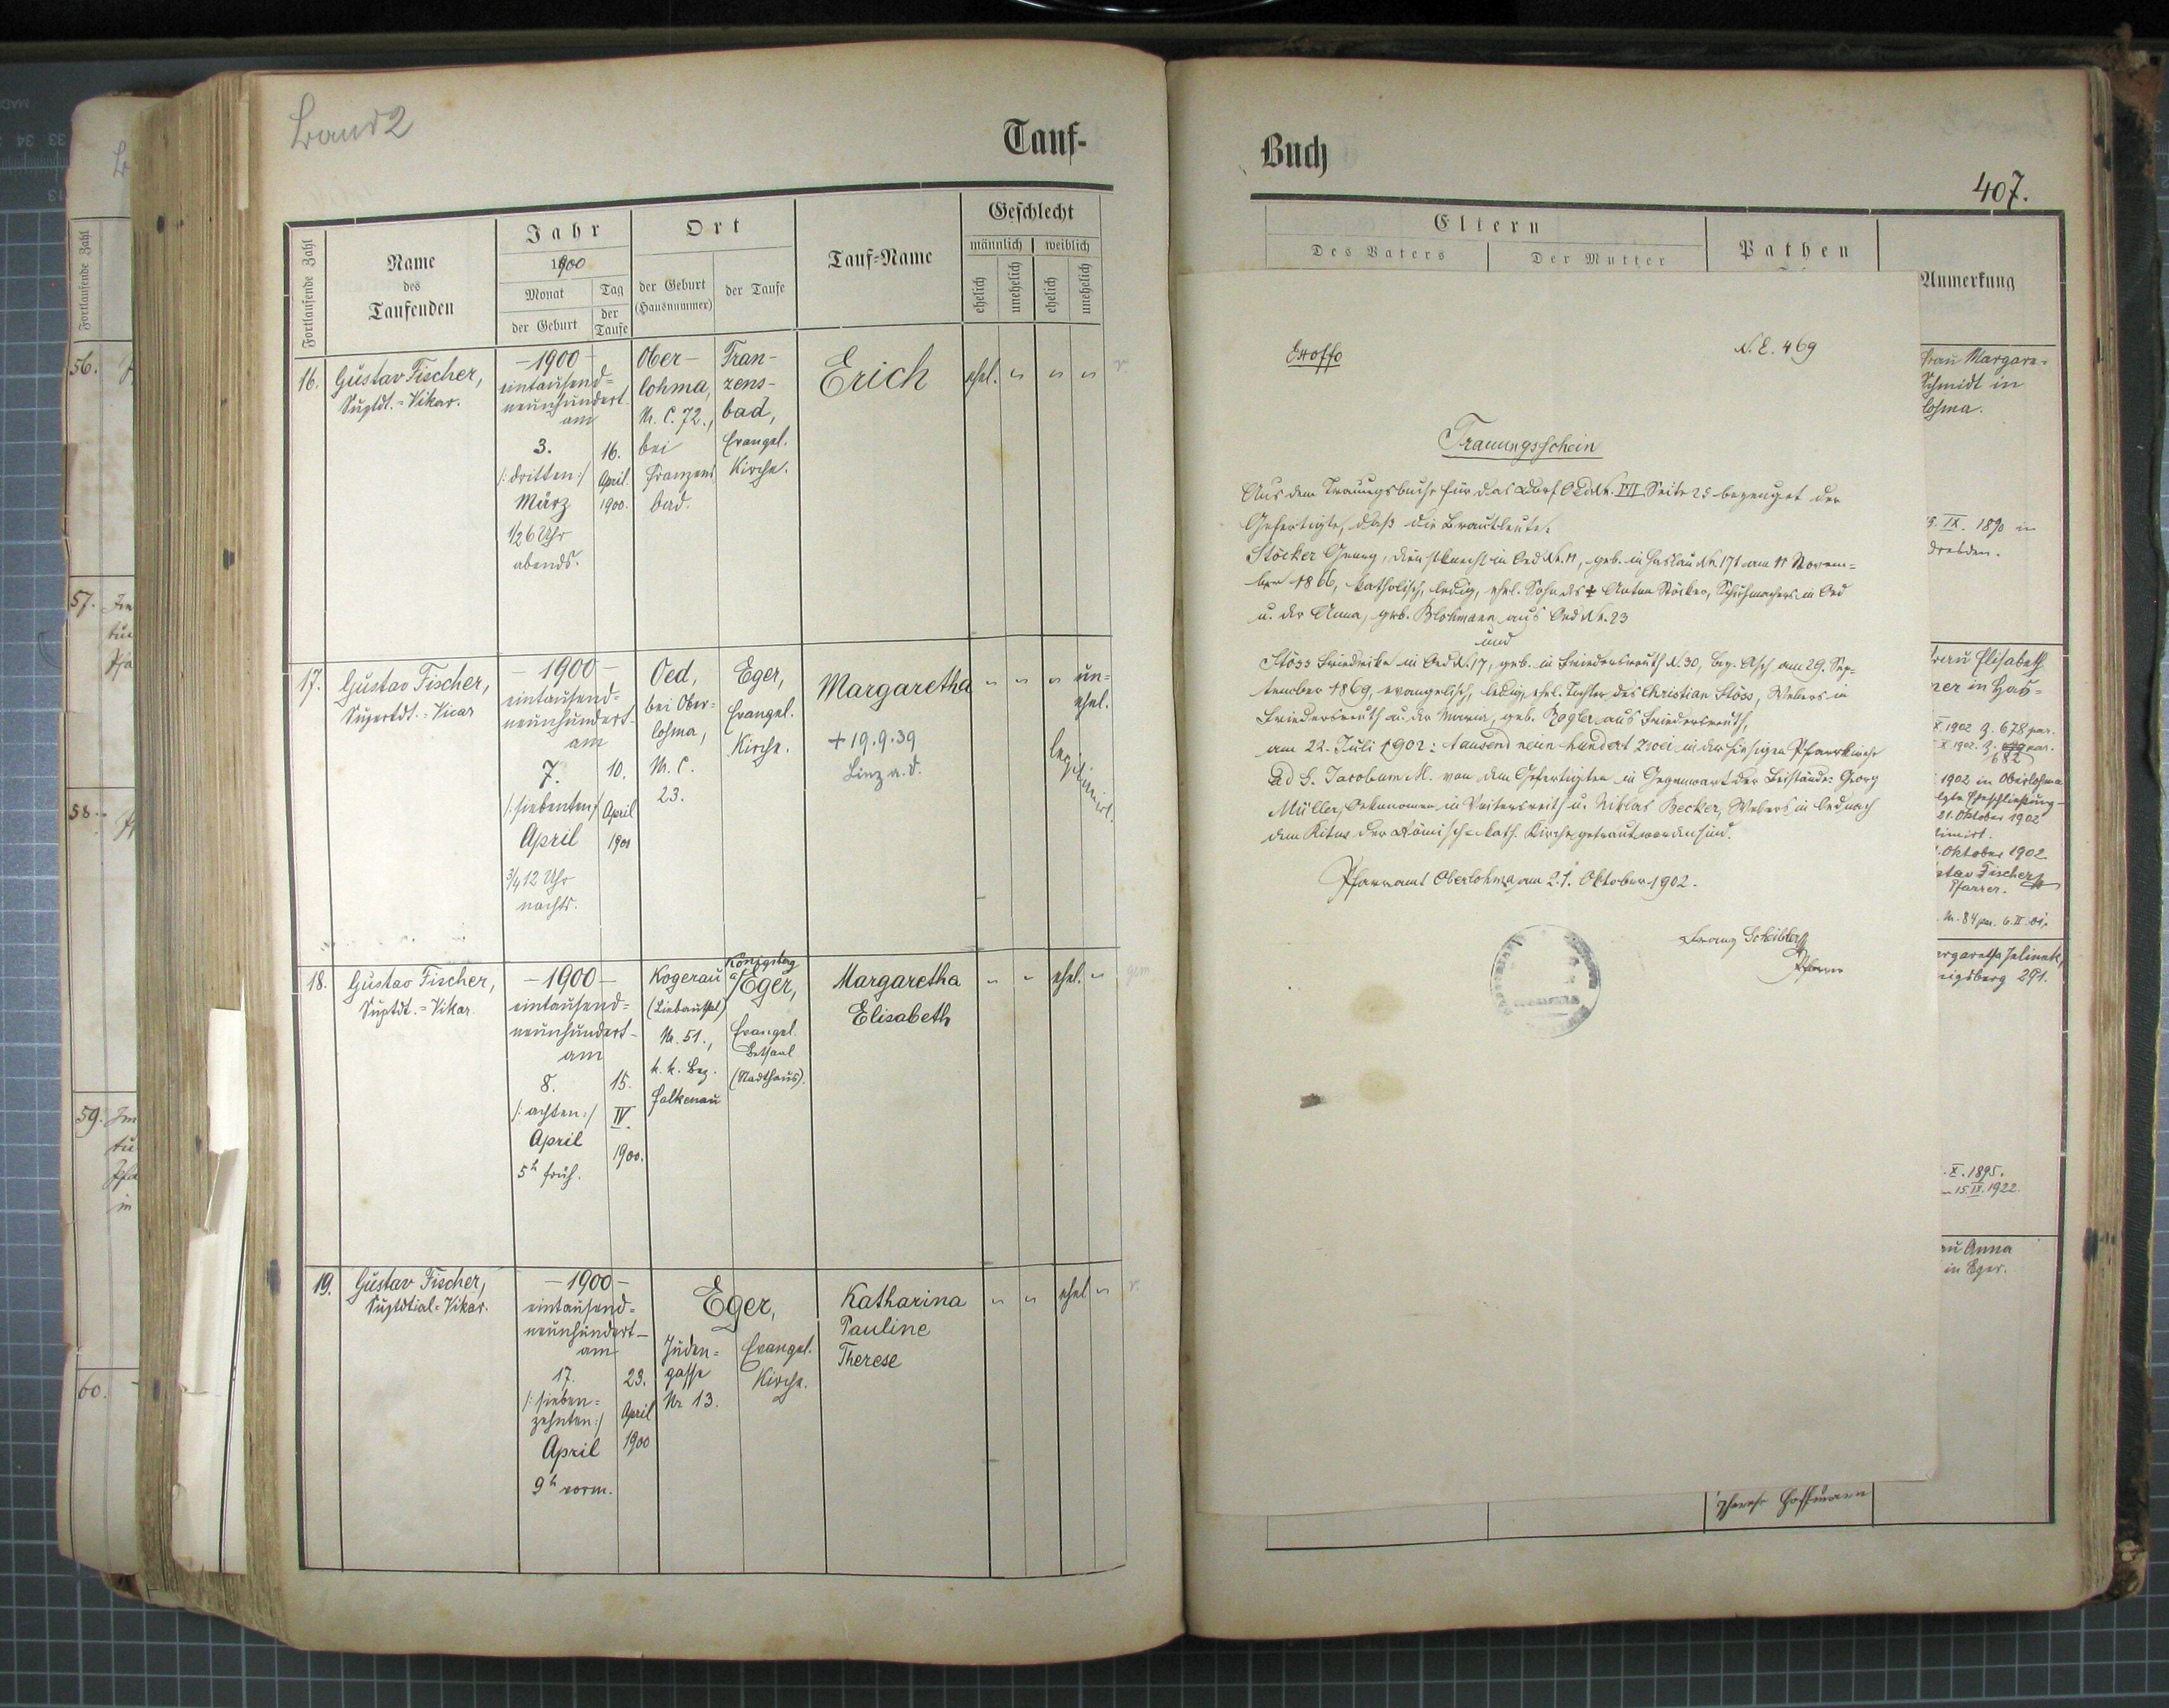 Band 2
Tauf-
Fortlaufende Zahl
Name
des
Taufenden
Jahr
1900
Monat
der Geburt
Tag
der
Taufe
Ort
der Geburt
(Hausnummer)
der Taufe
Tauf-Name
Geschlecht
männlich
weiblich
ehelich
unehelich
ehelich
unehelich
16.
Gustav Fischer,
Suptdt.=Vikar.
-1900-
eintausend=
neunhundert
am
3.
/:dritten:/
März
1/2 6 Uhr
abends.
16.
April
1900.
Ober-
lohma,
Nr. C. 72.,
bei
Franzens
bad.
Fran-
zens-
bad,
Evangel.
Kirche.
Erich
ehel.
17.
Gustav Fischer,
Supertdt.=Vicar
-1900-
eintausend=
neunhundert-
am
7.
/:siebenten:/
April
3/4 12 Uhr
nachts.
10.
April
1900
Oed,
bei Ober-
lohma,
Nr. C.
23.
Eger,
Evangel.
Kirche.
Margaretha
+ 19.9.39
Linz a. d.
un=
ehel.
legitimirt.
18.
Gustav Fischer,
Suptdt.=Vikar.
-1900-
eintausend=
neunhundert-
am
8.
/:achten:/
April
5h früh.
15.
IV.
1900.
Kogerau
(Liebauthal)
Nr. 51.,
k. k. Bez.
Falkenau
Königsberg
a/Eger,
Evangel.
Betsaal
(Stadthaus).
Margaretha
Elisabeth
ehel.
gem.
19.
Gustav Fischer,
Suptdtial=Vikar.
-1900-
eintausend=
neunhundert-
am
17.
/:sieben=
zehnten:/
April
9h vorm.
23.
April
1900
Eger,
Juden=
gasse
Nr. 13.
Evangel.
Kirche.
Katharina
Pauline
Therese
ehel
Buch
407.
Eltern
Des Vaters
Der Mutter
Pathen
Anmerkung
Exoffo
N. E. 469
Trauungsschein
Aus dem Trauungsbuche für das Dorf Oed Nr. VII. Seite 25 bezeuget der
Gefertigte, daß die Brautleute:
Stöcker Georg, Dienstknecht in Oed Nr. 11, geb. in Haslau Nr. 171 am 11 Novem=
ber 1866, katholisch, ledig, ehel. Sohn des + Anton Stöcker, Schuhmachers in Oed
u. der Anna, geb. Blohmann aus Oed Nr. 23
und
Stöss Friedrike in Oed N. 17, geb. in Friedersreuth N. 30, Bez. Asch am 29. Sep-
tember 1869, evangelisch, ledig, ehel. Tochter des Christian Stöss, Webers in
Friedersreuth u. der Maria, geb. Rogler aus Friedersreuth,
am 22. Juli 1902: tausend neun hundert zwei in der hiesigen Pfarrkirche
ad S. Jacobum M. von dem Gefertigten in Gegenwart der Beistände: Georg
Müller, Oekonomen in Voitersreith u. Niklas Becker, Webers in Oed nach
dem Ritus der Römisch=kath. Kirche getraut worden sind.
Pfarramt Oberlohma am 21. Oktober 1902.
Franz Scheibler
Pfarrer
Frau Margare=
Schmidt in
lohma.
5. IX. 1890 in
Dresden.
Frau Elisabeth
ner in Has=
X. 1902 Z. 678 par.
X 1902. Z. par.
682
1902 in Oberlohma
lgte Eheschließung-
21. Oktober 1902
timirt.
Oktober 1902.
stav Fischer
Pfarrer.
Nr. 84 par. 6. II. 01.
argaretha Jelinek,
nigsberg 291.
X. 1895.
15. IX. 1922.
au Anna
in Eger.
Therese Hoffmann
Fortlaufende Zahl
56.
57.
58.
59.
60.